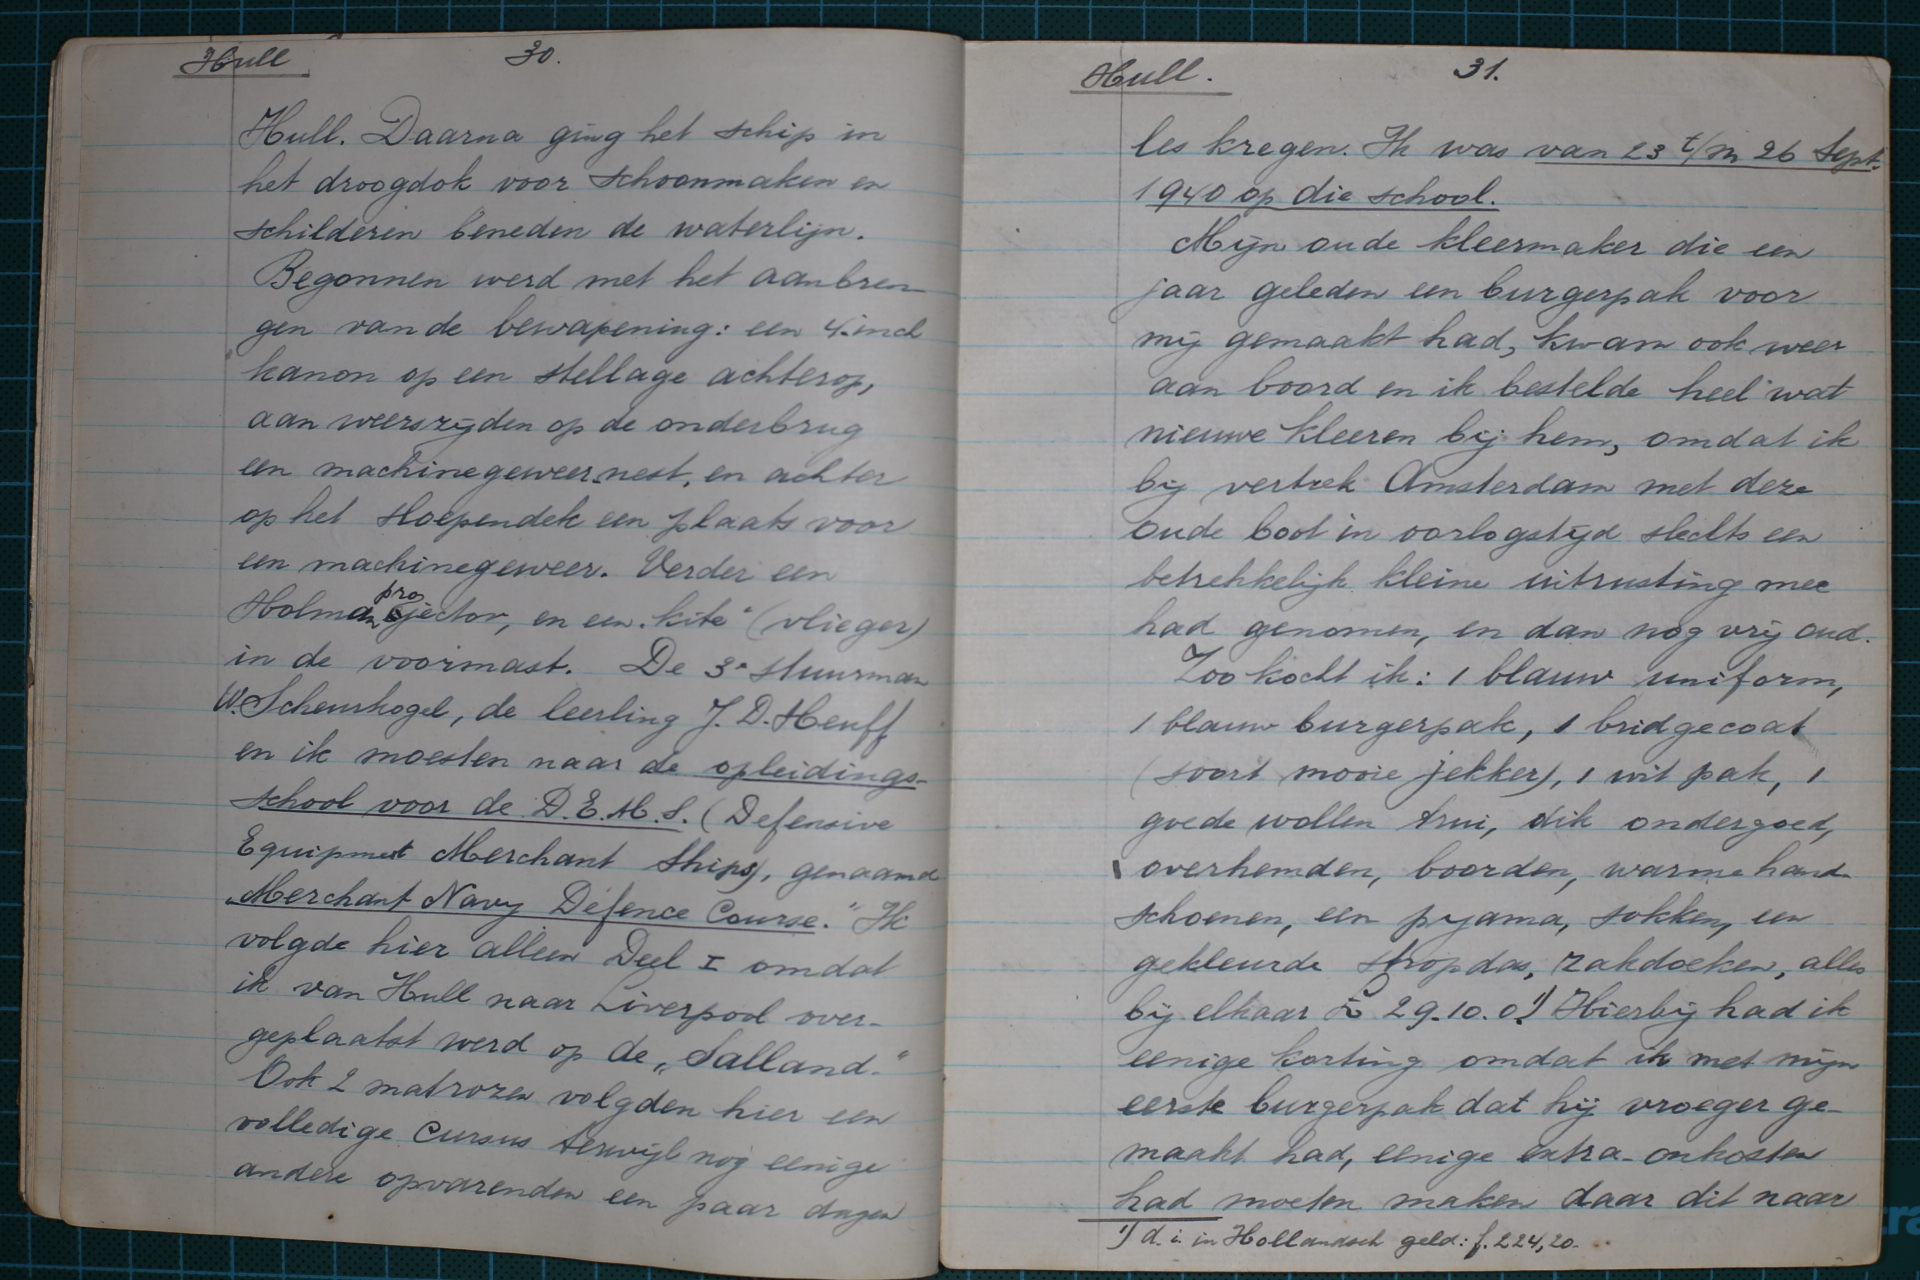 Hull 30.
Hull. Daarna ging het schip in
het droogdok voor schoonmaken en
schilderen beneden de waterlijn.
Begonnen werd met het aanbren-
gen van de bewapening: een 4-inch
kanon op een stellage achterop,
aan weerszijden op de onderbrug
een machinegeweernest, en achter
op het sloependek een plaats voor
een machinegeweer. Verder een
Holman projector, en een "kite" (vlieger)
in de voormast. De 3e stuurman
W. Scheurkogel, de leerling J. D. Heuff
en ik moesten naar de opleidings-
school voor de D.E.M.S. (Defensive
Equipment Merchant Ships), genaamd
„Merchant Navy Defence Course." Ik
volgde hier alleen Deel I omdat
ik van Hull naar Liverpool over-
geplaatst werd op de „Salland."
Ook 2 matrozen volgden hier een
volledige cursus terwijl nog eenige
andere opvarenden een paar dagen
Hull. 31.
les kregen. Ik was van 23 t/m 26 Sept.
1940 op die school.
Mijn oude kleermaker die een
jaar geleden een burgerpak voor
mij gemaakt had, kwam ook weer
aan boord en ik bestelde heel wat
nieuwe kleeren bij hem, omdat ik
bij vertrek Amsterdam met deze
oude boot in oorlogstijd slechts een
betrekkelijk kleine uitrusting mee
had genomen, en dan nog vrij oud.
Zoo kocht ik: 1 blauw uniform,
1 blauw burgerpak, 1 bridgecoat
(soort mooie jekker), 1 wit pak, 1
goede wollen trui, dik ondergoed,
overhemden, boorden, warme hand-
schoenen, een pyama, sokken, een
gekleurde stropdas, zakdoeken, alles
bij elkaar £ 29.10.0. 1) Hierbij had ik
eenige korting omdat ik met mijn
eerste burgerpak dat hij vroeger ge-
maakt had, eenige extra-onkosten
had moeten maken daar dit naar
1) d.i. in Hollandsch geld: f. 224,20.